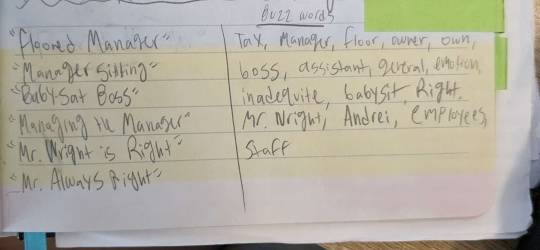 Buzz words
"Floored Manager"
"Manager Sitting"
"Baby-Sat Boss"
"Managing the Manager"
"Mr. Wright is Right"
"Mr. Always Right"
Tax, Manager, floor, owner, own,
boss, assistant, general, emotion,
inadequite, babysit, Right,
Mr. Wright, Andrei, employees,
Staff